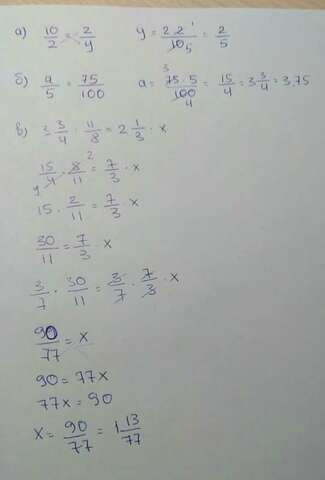 а) 10/2 = 2/y   y = 2·2/10 5 = 2/5
б) a/5 = 75/100   a = 3 75·5/100 4 = 15/4 = 3 3/4 = 3,75
в) 3 3/4 : 11/8 = 2 1/3 · x
15/4 · 8/11 2 = 7/3 · x
15 · 2/11 = 7/3 · x
30/11 = 7/3 · x
3/7 · 30/11 = 3/7 · 7/3 · x
90/77 = x
90 = 77x
77x = 90
x = 90/77 = 1 13/77